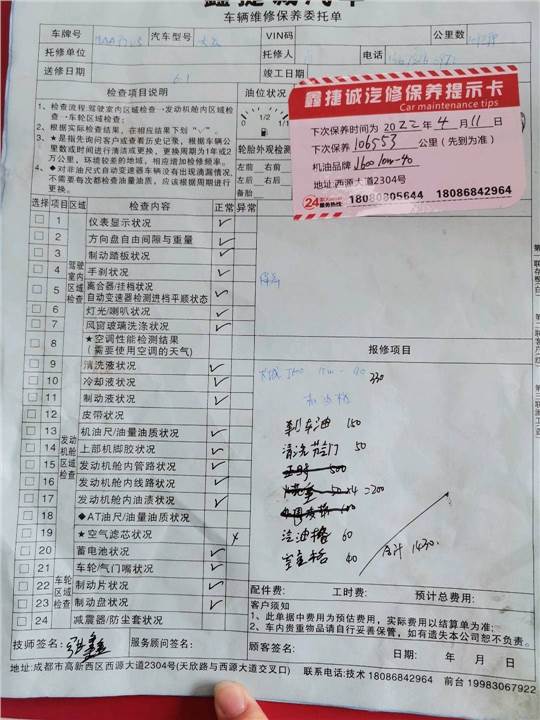 鑫捷诚汽车
车辆维修保养委托单
车牌号 汽车型号 VIN码 公里数
托修单位 托修人 电话
送修日期 6.1 竣工日期
检查项目说明 油位状况
1、检查流程:驾驶室内区域检查→发动机舱内区域检查→车轮区域检查;
2、根据实际检查结果,在相应结果下划"√"。
3、★是指先询问客户或查看历史记录,根据车辆公里数或时间进行清洁或更换,更换周期为1年或2万公里,环境较差的地域,相应增加检修频率。
4、◆对非油尺式自动变速器车辆没有出现滴漏情况,不需要每次都检查油量油质,应该根据周期进行更换。
0 1/2
轮胎外观检测
左前 右前
左后 右后
备胎
鑫捷诚汽修保养提示卡
Car maintenance tips
下次保养时间为 2022年4月11日
下次保养 106553 公里(先到为准)
机油品牌 J600 10w-40
地址:西源大道2304号
24 服务热线: 18080805644 18086842964
选择 项目 区域 检查内容 正常 异常
驾驶室内区域检查
1 仪表显示状况 √
2 方向盘自由间隙与重量 √
3 制动踏板状况 √
4 手刹状况 √
5 离合器/挂档状况
自动变速器检测进档平顺状态 √
6 灯光/喇叭状况 √
7 风窗玻璃洗涤状况 √
8 ★空调性能检测结果
(需要使用空调的天气)
发动机舱区域检查
9 清洗液状况 √
10 冷却液状况 √
11 制动液状况 √
12 皮带状况
13 机油尺/油量油质状况 √
14 上部机脚胶状况 √
15 发动机舱内管路状况 √
16 发动机舱内线路状况 √
17 发动机舱内油渍状况 √
18 ◆AT油尺/油量油质状况
19 ★空气滤芯状况
20 蓄电池状况 √
车轮区域检查
21 车轮/气门嘴状况 √
22 制动片状况 √
23 制动盘状况 √
24 减震器/防尘套状况
报修项目
J600 10w-40 330
刹车油 150
清洗节气门 50
500
50×4=200
汽油格 60
空气格 40
合计 1430.
配件费: 工时费: 预计总费用:
客户须知
1、此单据中费用为预估费用,实际费用以结算单为准;
2、车内贵重物品请自行妥善保管,如有遗失本公司恕不负责。
技师签名: 服务顾问签名: 顾客签名: 日期: 年 月 日
地址:成都市高新西区西源大道2304号(天欣路与西源大道交叉口) 联系电话:技术 18086842964 前台 19983067922